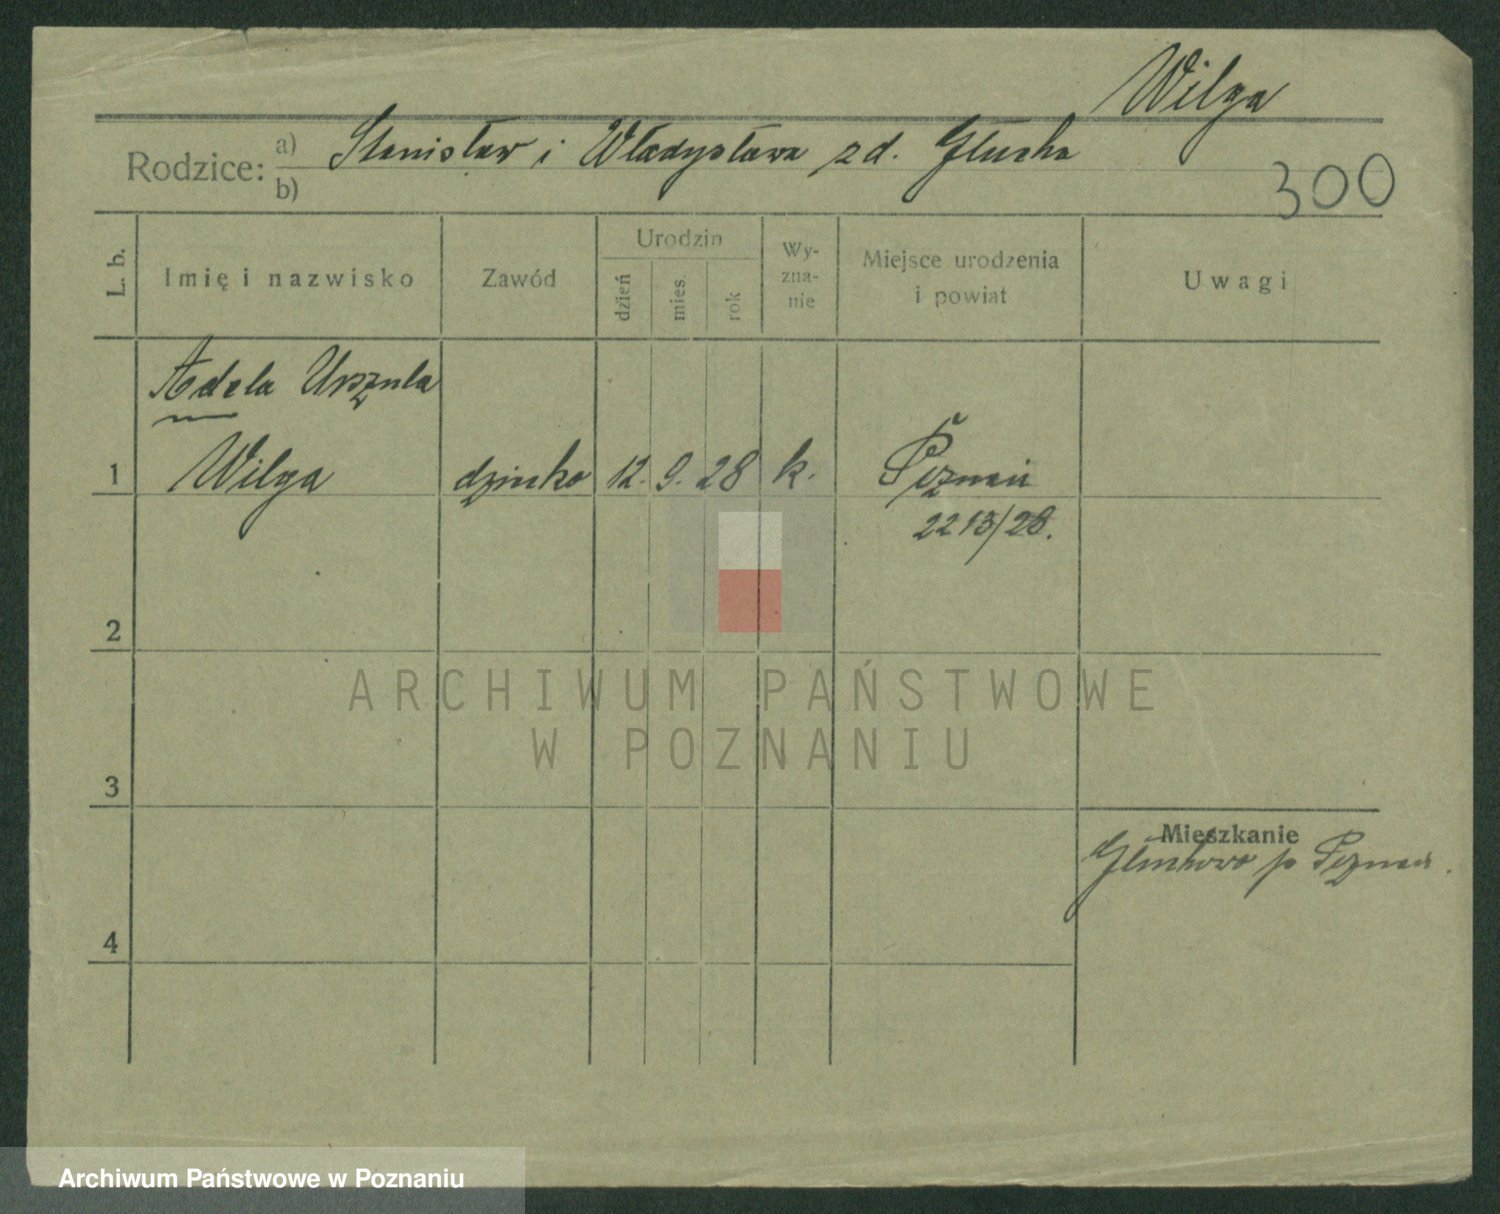 Wilga
Rodzice: a) Stanisław i Władysława z d. Głucha
b)
300
L. b.
Imię i nazwisko
Zawód
Urodzin
dzień
mies.
rok
Wy-
zna-
nie
Miejsce urodzenia
i powiat
Uwagi
Adela Urszula
1 Wilga dziecko 12. 9. 28 k. Poznań
2213/28.
2
ARCHIWUM PAŃSTWOWE
W POZNANIU
3
Mieszkanie
Głuchowo p Poznań.
4
Archiwum Państwowe w Poznaniu